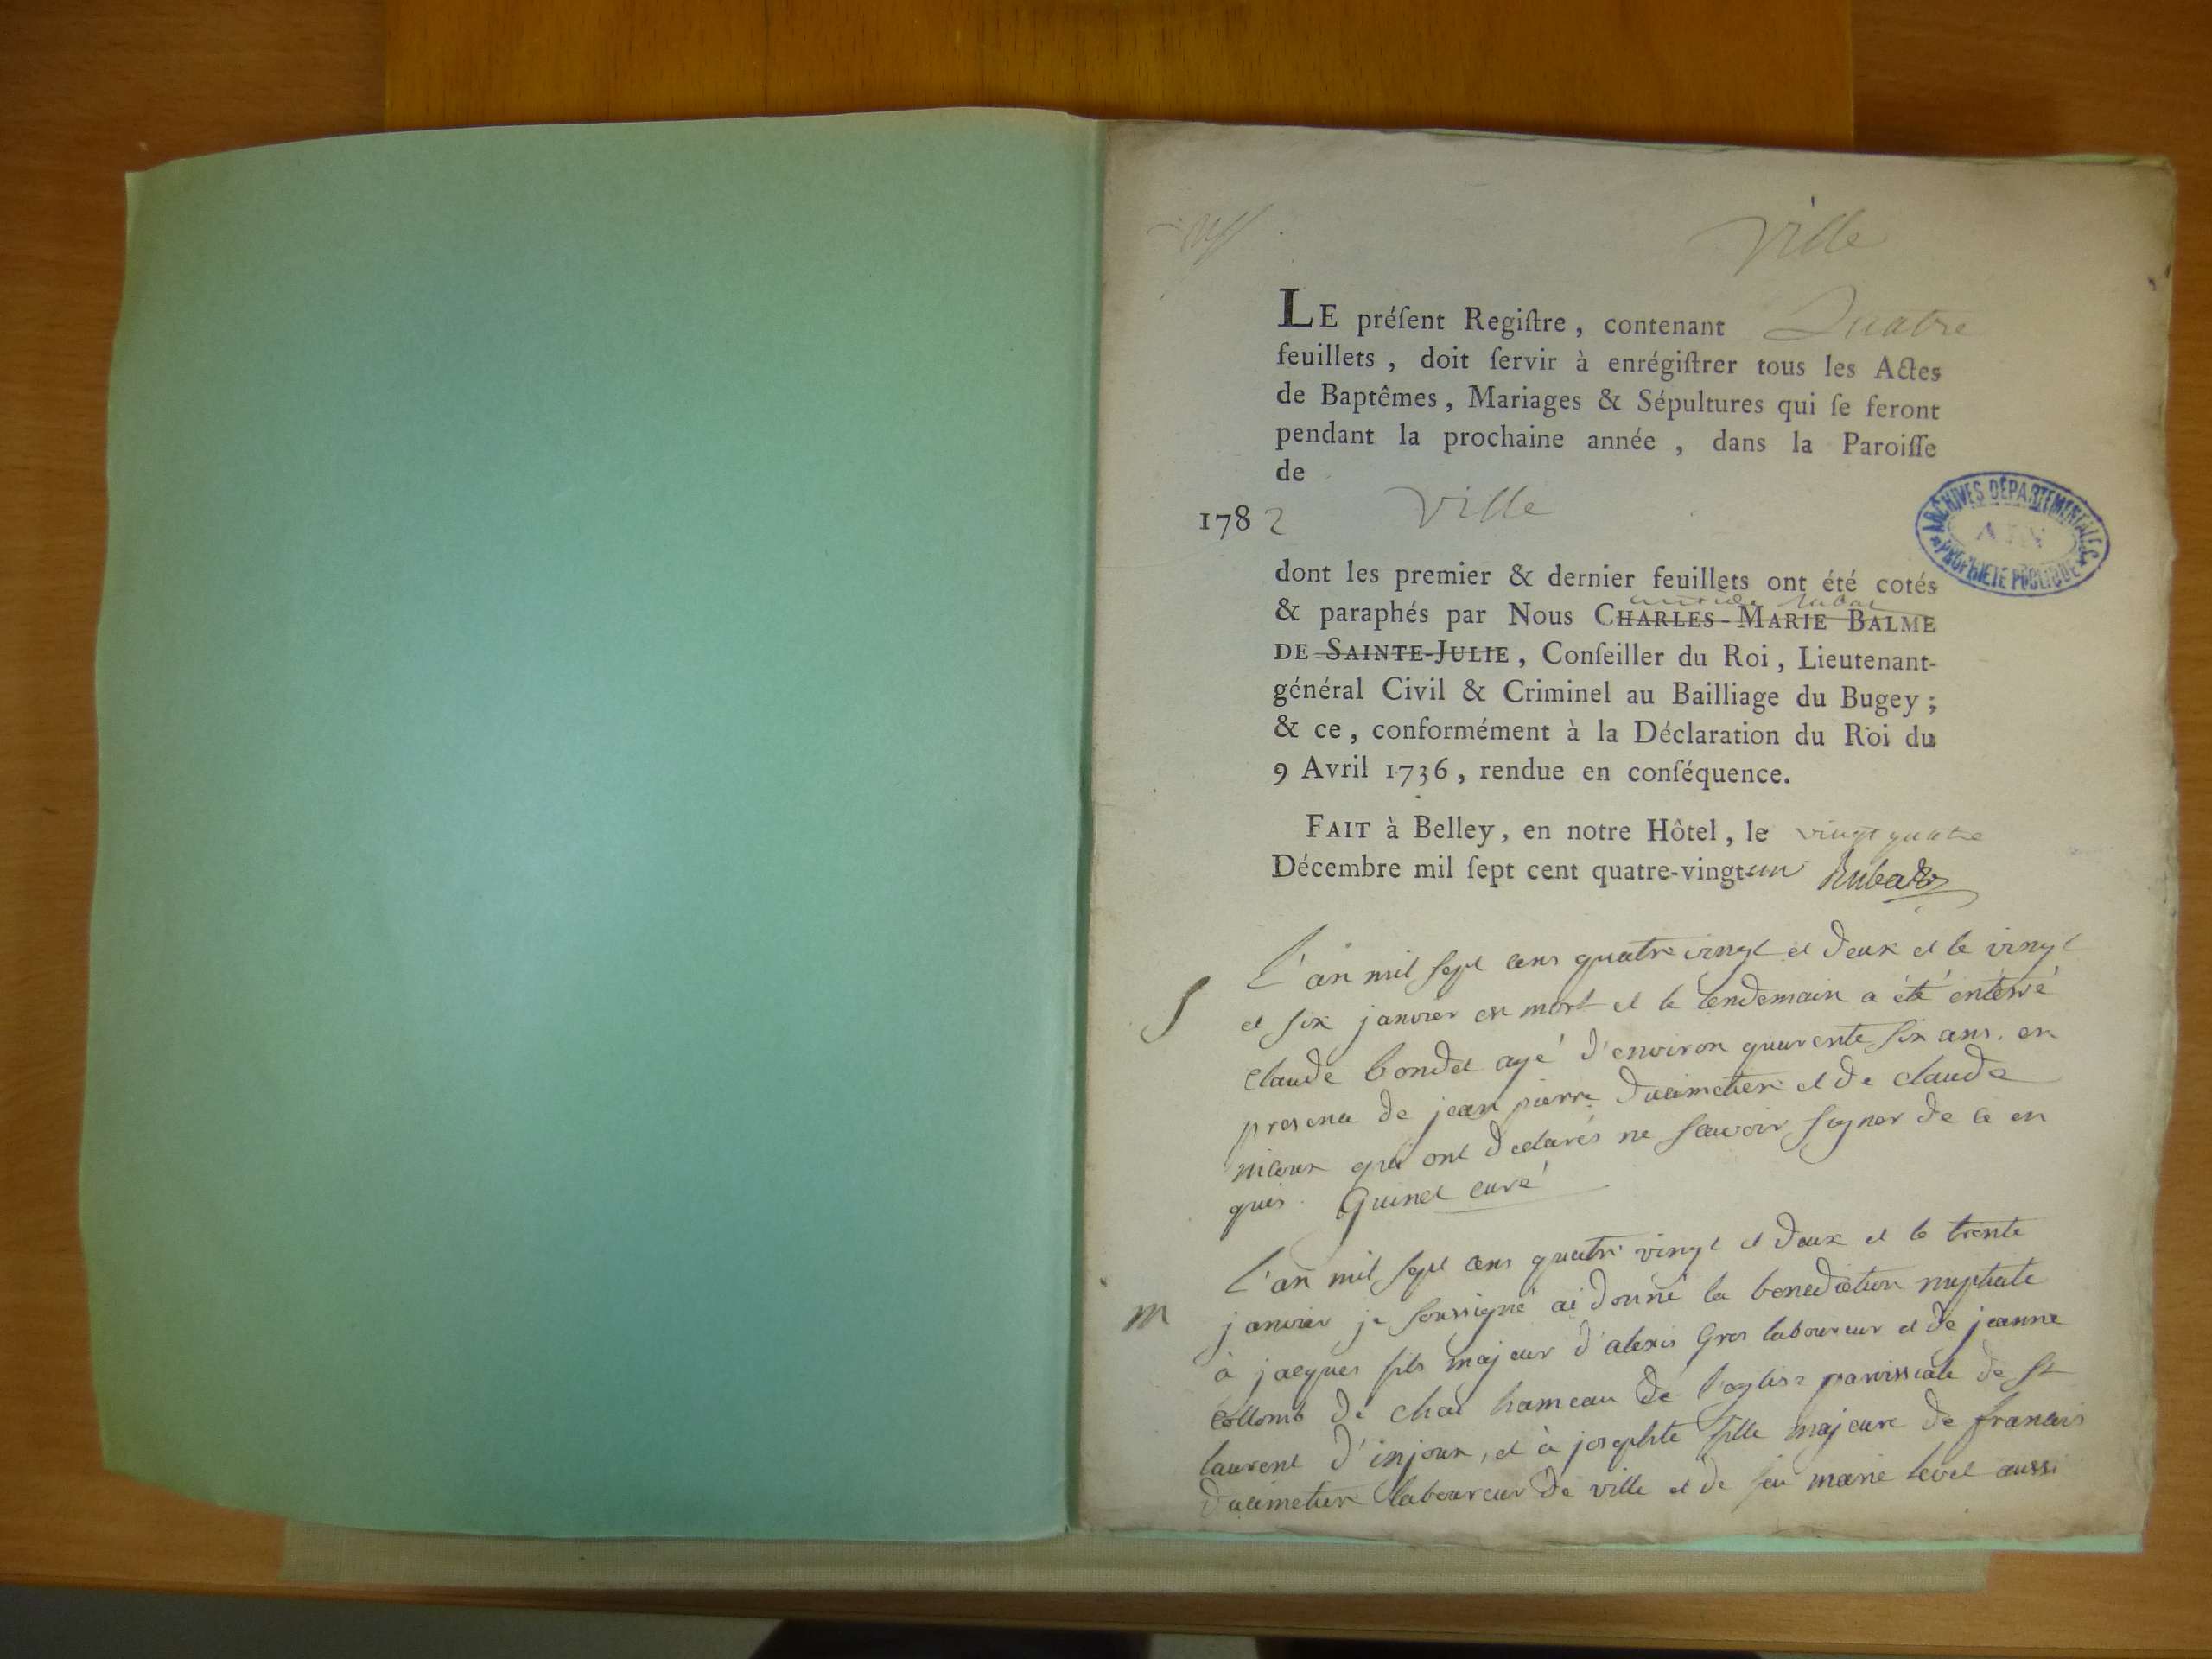 Ville
LE préſent Regiſtre, contenant Quatre
feuillets, doit ſervir à enrégiſtrer tous les Actes
de Baptêmes, Mariages & Sépultures qui ſe feront
pendant la prochaine année, dans la Paroiſſe
de
1782 Ville
ARCHIVES DÉPARTEMENTALES
AIN
PROPRIÉTÉ PUBLIQUE
dont les premier & dernier feuillets ont été cotés
& paraphés par Nous CHARLES-MARIE BALME
DE SAINTE-JULIE, Conſeiller du Roi, Lieutenant-
général Civil & Criminel au Bailliage du Bugey;
& ce, conformément à la Déclaration du Roi du
9 Avril 1736, rendue en conſéquence.
FAIT à Belley, en notre Hôtel, le vingt quatre
Décembre mil ſept cent quatre-vingt-un Rubat
L'an mil sept cens quatre vingt et deux et le vingt
S et six janvier est mort et le lendemain a été enterré
claude bondet agé d'environ quarente six ans, en
presence de jean pierre ducimetiere et de claude
qui ont declarés ne savoir signer de ce en
quis. Guinet curé
L'an mil sept cens quatre vingt et deux et le trente
m janvier je soussigné ai donné la benediction nuptiale
à jacques fils majeur d'alexis Gros laboureur et de jeanne
collomb de hameau de l'eglise paroissiale de st
laurent d'injoux, et à josephte fille majeure de francois
ducimetiere laboureur de ville et de feu marie levet aussi